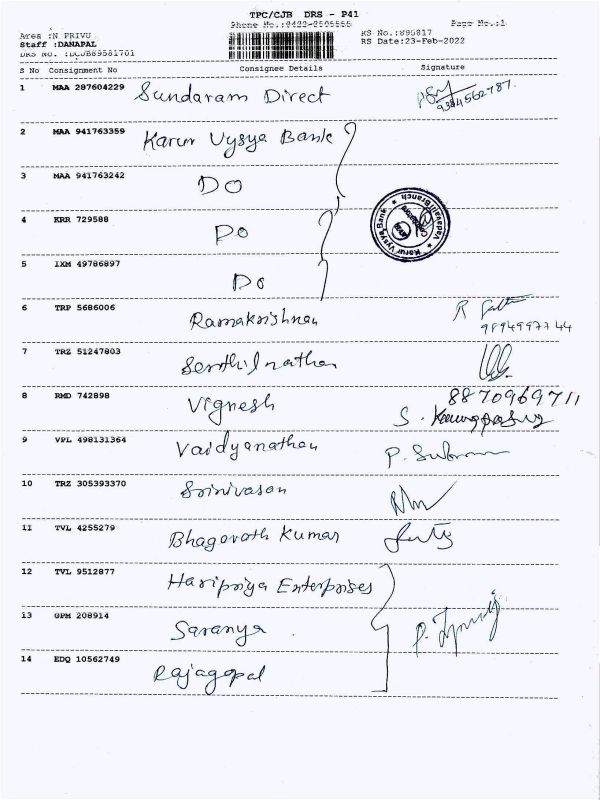 TPC/CJB DRS - P41
Page No.:1
Area :N PRIVU
Staff :DANAPAL
RS No.:895817
RS Date:23-Feb-2022
DRS No. :DCJB89581701
S No Consignment No Consignee Details Signature
1 MAA 287604229 Sundaram Direct
9384562787
2 MAA 941763359 Karur Vysya Bank
3 MAA 941763242 DO
4 KRR 729588 DO
Karur Vysya Bank
5 IXM 49786897 DO
6 TRP 5686006 Ramakrishnan R
9894997744
7 TRZ 51247803 Senthilnathan
8 RMD 742898 Vignesh 8870969711
S.
9 VPL 498131364 Vaidyanathan P. Subram
10 TRZ 305393370 Srinivasan
11 TVL 4255279 Bhagavath Kumar
12 TVL 9512877 Haripriya Enterprises
13 GPM 208914 Saranya
14 EDQ 10562749 Rajagopal